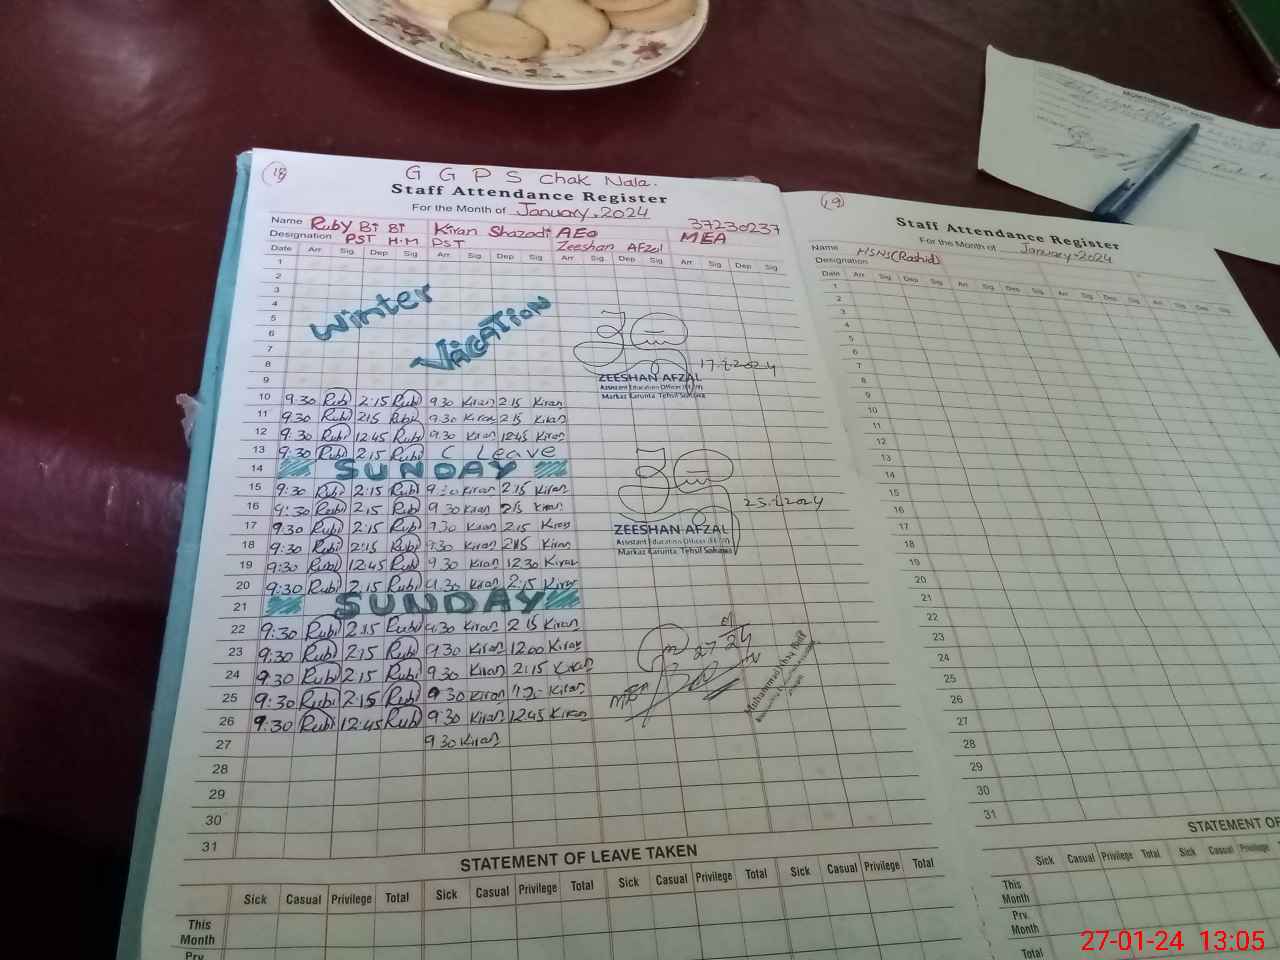 18
G G P S Chak Nala.
Staff Attendance Register
For the Month of January, 2024
Name Ruby Bi Bi Kiran Shazadi AEO 37230237
Designation PST H.M PST Zeeshan Afzal MEA
Date Arr Sig Dep Sig Arr Sig Dep Sig Arr Sig Dep Sig Arr Sig Dep Sig
1
2
3
4
5
6
7
8
9
Winter Vacation
17.1.2024
ZEESHAN AFZAL
Assistant Education Officer
Markaz Karunta Tehsil Sohawa
10 9:30 Rubi 2:15 Rubi 9.30 Kiran 2:15 Kiran
11 9:30 Rubi 2:15 Rubi 9.30 Kiran 2:15 Kiran
12 9:30 Rubi 12:45 Rubi 9.30 Kiran 12:45 Kiran
13 9:30 Rubi 2:15 Rubi C Leave
14 SUNDAY
15 9:30 Rubi 2:15 Rubi 9:30 Kiran 2:15 Kiran
16 9:30 Rubi 2:15 Rubi 9.30 Kiran 2:15 Kiran
17 9:30 Rubi 2:15 Rubi 9.30 Kiran 2:15 Kiran
18 9:30 Rubi 2:15 Rubi 9:30 Kiran 2:15 Kiran
19 9:30 Rubi 12:45 Rubi 9.30 Kiran 12.30 Kiran
20 9:30 Rubi 2.15 Rubi 9.30 Kiran 2:15 Kiran
21 SUNDAY
25.1.2024
ZEESHAN AFZAL
Assistant Education Officer
Markaz Karunta Tehsil Sohawa
22 9:30 Rubi 2:15 Rubi 9.30 Kiran 2 15 Kiran
23 9:30 Rubi 2:15 Rubi 9.30 Kiran 12.00 Kiran
24 9:30 Rubi 2:15 Rubi 9.30 Kiran 2:15 Kiran
25 9:30 Rubi 2:15 Rubi 9 30 Kiran Kiran
26 9:30 Rubi 12:45 Rubi 9 30 Kiran 12:45 Kiran
27 9 30 Kiran
28
29
30
31
27 24
MEA
STATEMENT OF LEAVE TAKEN
Sick Casual Privilege Total Sick Casual Privilege Total Sick Casual Privilege Total Sick Casual Privilege Total
This Month
Prv.
19
Staff Attendance Register
For the Month of January-2024
Name HSNS(Rashid)
Designation
Date Arr Sig Dep Sig Arr Sig Dep Sig Arr Sig Dep Sig Arr Sig
1
2
3
4
5
6
7
8
9
10
11
12
13
14
15
16
17
18
19
20
21
22
23
24
25
26
27
28
29
30
31
STATEMENT OF
Sick Casual Privilege Total Sick Casual Privilege
This Month
Prv. Month
Total
27-01-24 13:05